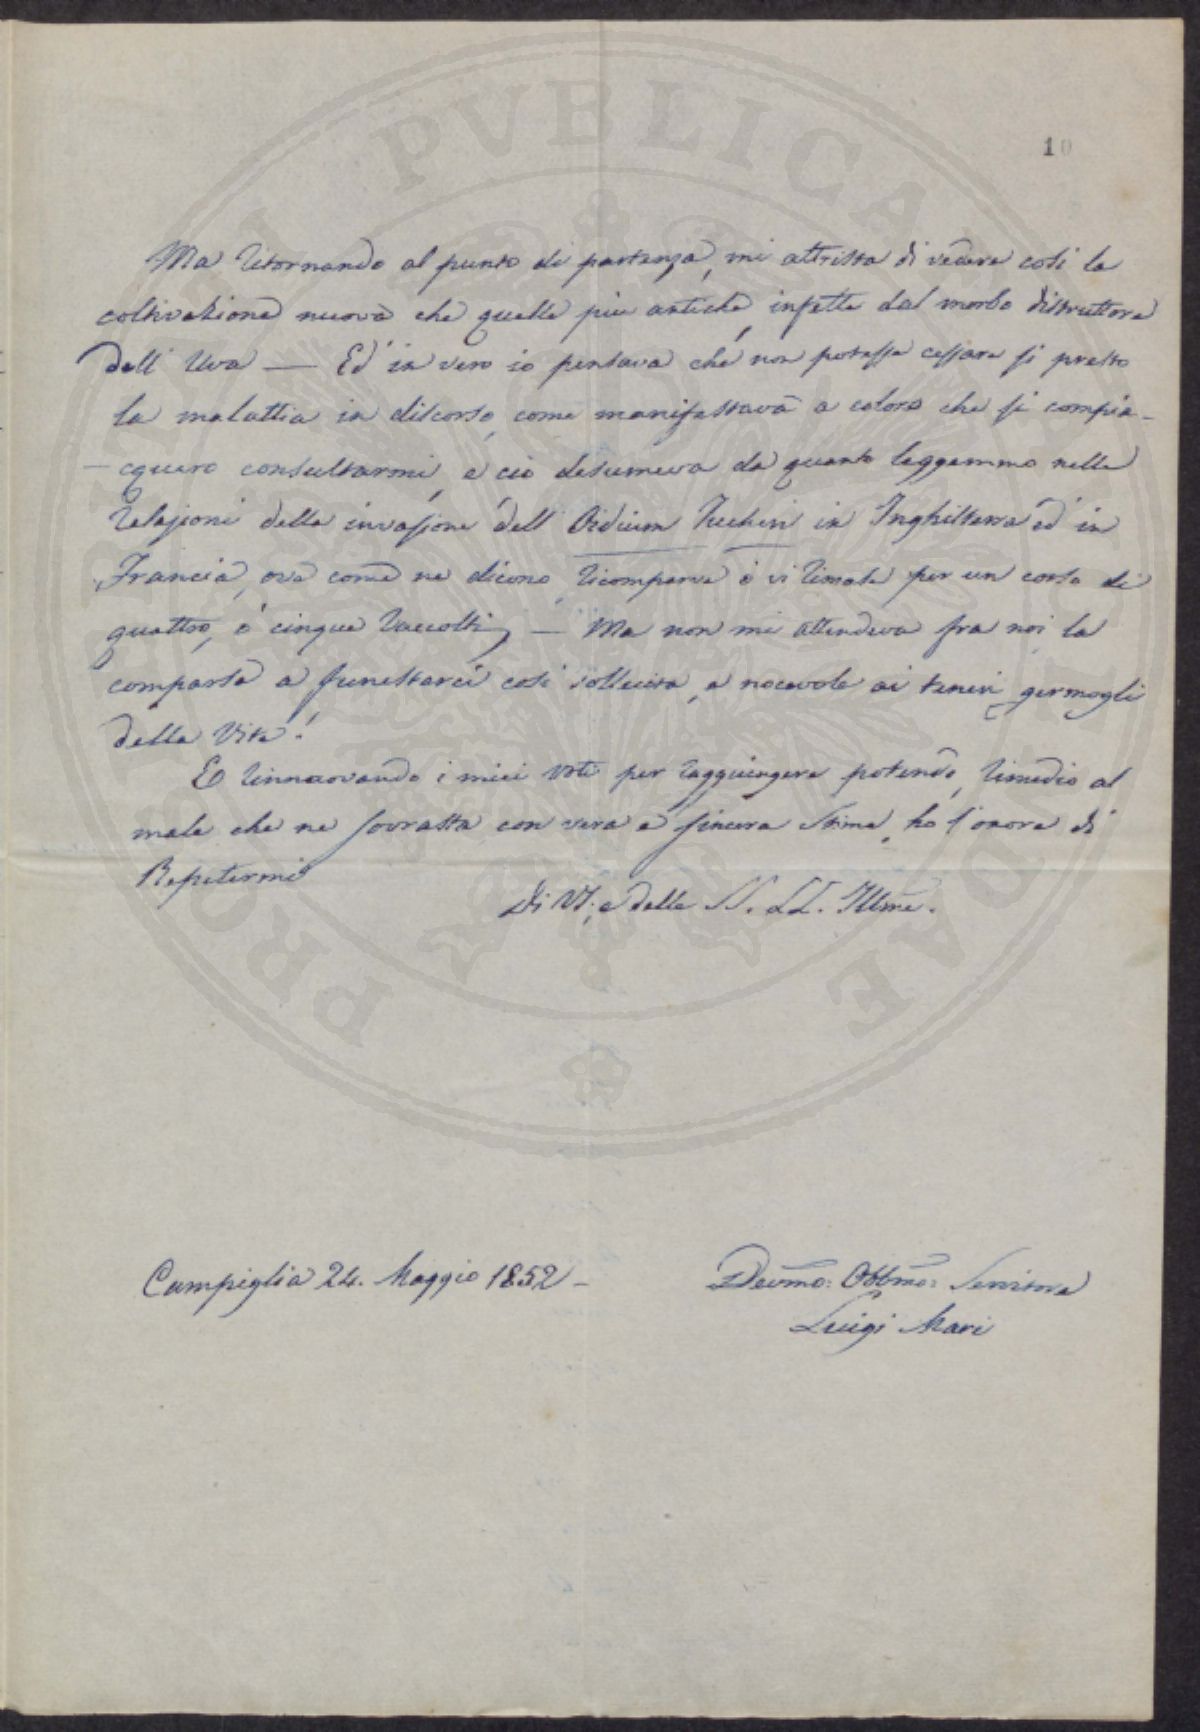 10
Ma ritornando al punto di partenza, mi attrista di vedere così la
coltivazione nuova che quelle più antiche, infette dal morbo distruttore
dell' Uva — Ed in vero io pensava che non potesse cessare sì presto
la malattia in discorso, come manifestava a coloro che si compia-
-cquero consultarmi, e ciò desumeva da quanto leggemmo nelle
relazioni della invasione dell' Oidium Tucheri in Inghilterra ed in
Francia, ove come ne dicono, ricomparve o vi rimase per un corso di
quattro, o cinque raccolti, — Ma non mi attendeva fra noi la
comparsa a funestarci così sollecita, e nocevole ai teneri germogli
della Vite!
E rinnuovando i miei voti per raggiungere potendo, rimedio al
male che ne sovrasta con vera e sincera stima, ho l'onore di
Repetermi
Di VS. e delle SS. LL. Illme.
Campiglia 24. Maggio 1852 –
Devmo: Obbmo: Servitore
Luigi Mari
PROBITATI PVBLICAE